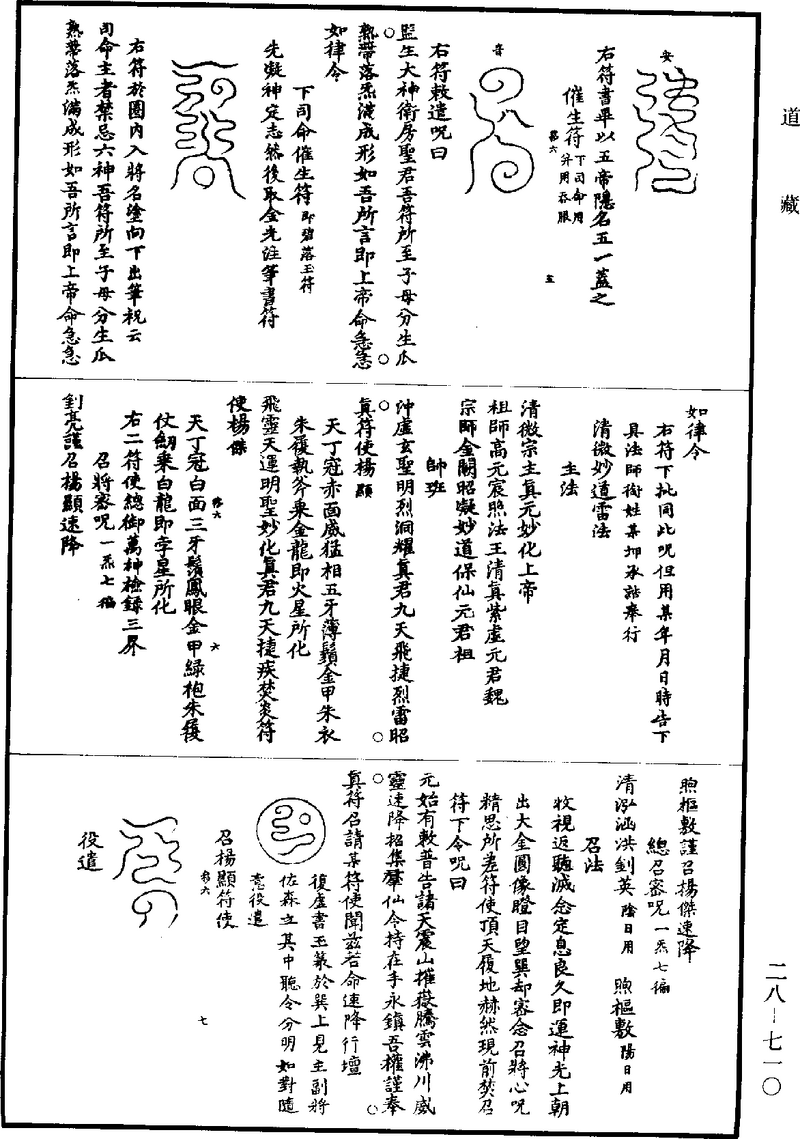 道藏
安
右符書畢以五帝隱名五一蓋之
催生符下司命用
弁用吞服
終六
五
音
右符敕遣呪曰
監生大神衛房聖君吾符所至子母分生瓜
熟蒂落炁滿成形如吾所言即上帝命急急
如律令
下司命催生符即碧落玉符
先凝神定志然後取金光注筆書符
右符於圈内入將名塗向下出筆祝云
司命主者禁忌六神吾符所至子母分生瓜
熟蒂落炁滿成形如吾所言即上帝命急急
如律令
右符下批同此呪但用某年月日時告下
具法師銜姓某押承誥奉行
清微妙道雷法
主法
清微宗主真元妙化上帝
祖師高元宸照法王清真紫虛元君魏
宗師金闕昭凝妙道保仙元君祖
帥班
沖虛玄聖明烈洞耀真君九天飛捷烈雷昭
真符使楊顯
天丁冠赤面威猛相五牙薄鬚金甲朱衣
朱履執斧乘金龍即火星所化
飛靈天運明聖妙化真君九天捷疾焚炎符
使楊傑
天丁冠白面三牙鬚鳳眼金甲綠袍朱履
終六
六
仗劒乘白龍即孛星所化
右二符使總御萬神檢錄三界
召將密呪一炁七徧
釗亮謹召楊顯速降
煦樞敷謹召楊傑速降
總召密呪一炁七徧
清泓涵洪釗英陰日用 煦樞敷陽日用
召法
收視返聽滅念定息良久即運神光上朝
出大金圓像瞪目望巽却密念召將心呪
精思所差符使頂天履地赫然現前焚召
符下令呪曰
元始有敕普告諸天震山摧嶽騰雲沸川威
靈速降招集羣仙令持在手永鎮吾權謹奉
真符召請某符使聞兹若命速降行壇
復虛書玉篆於巽上見主副將
佐森立其中聽令分明如對隨
意役遣
召楊顯符使
終六
七
役遣
二八—七一〇